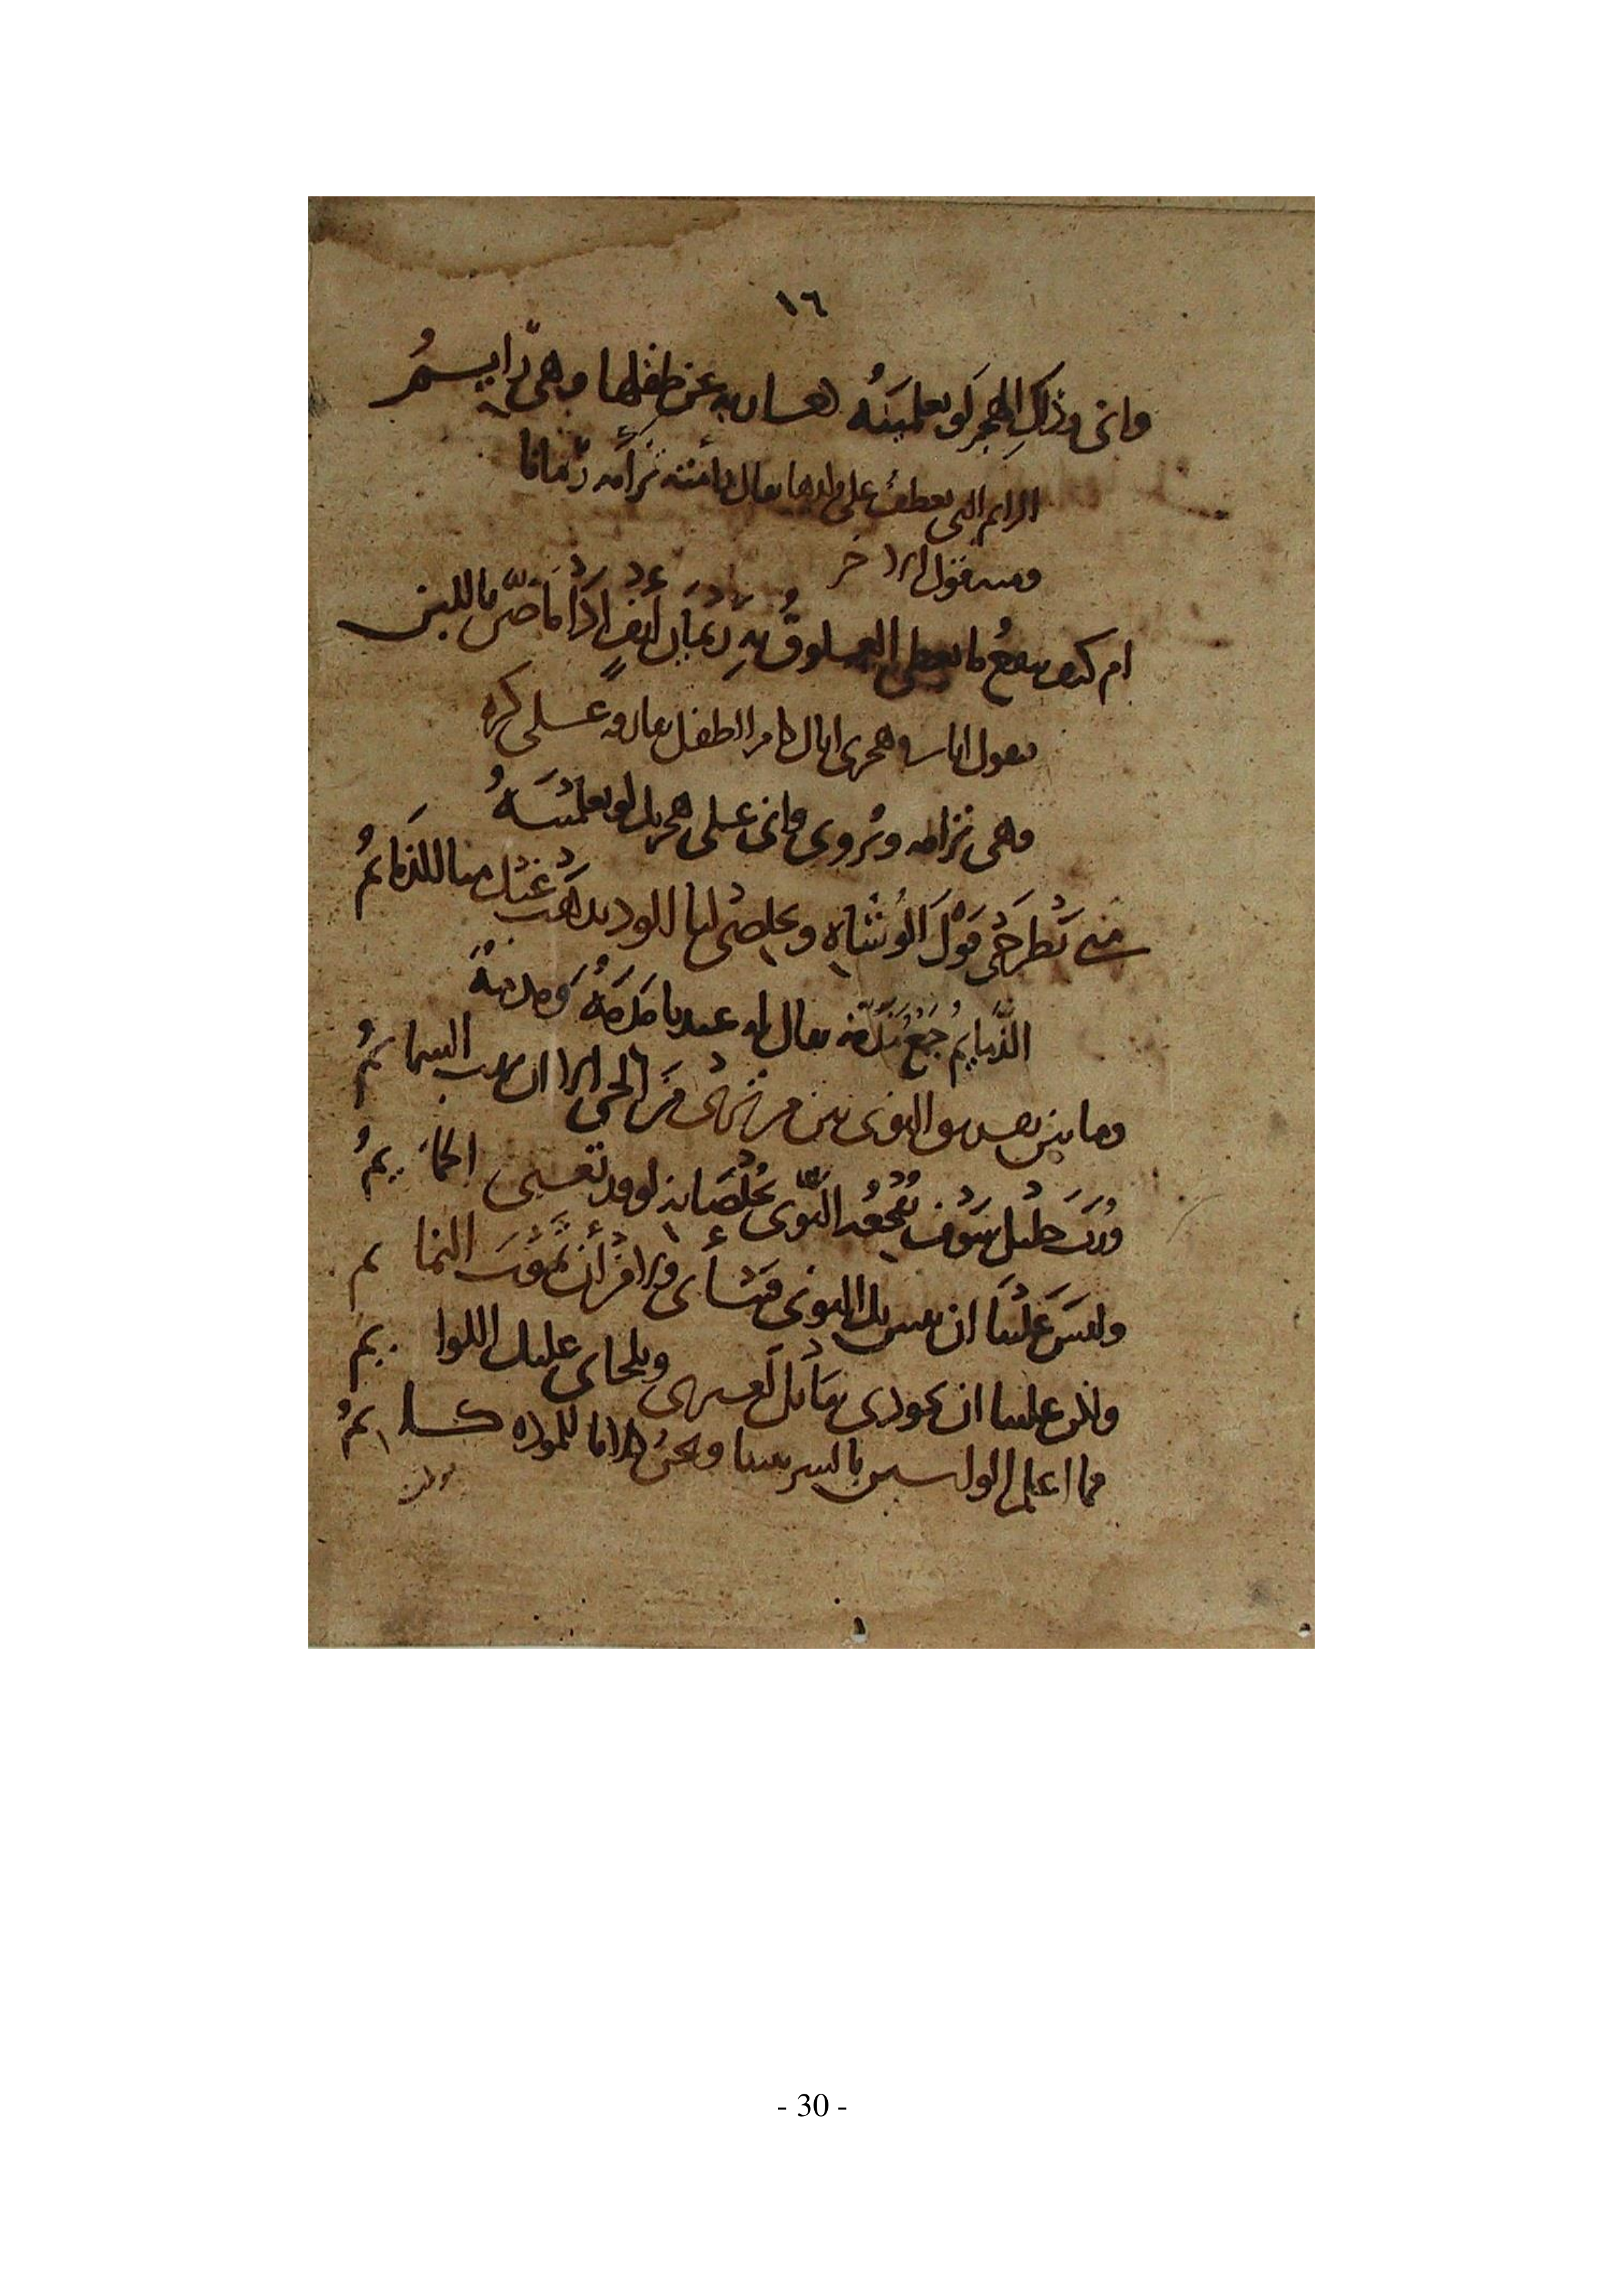 ١٦
واني وذاك الهجر لو تعلمينه كعازبة عن طفلها وهي رايم
الرايم التي تعطف على ولدها يقال رئمته ترأمه رئمانا
ومنه قول الاخر
ام كيف ينفع ما تعطى العلوق به رئمان أنف اذا ما ضن باللبن
يقول انا في هجري اياك كامر الطفل تفارقه على كره
وهي ترامه ويروى واني على هجريك لو تعلمينه
متى تطرحي قول الوشاة وتخلصي لنا الود يذهب عنك منا اللذمايم
الذمايم جمع يقال له عندنا مذمة ومذمة
وما بين تفريق النوى بين من ترى من الحي الا ان تهب السمايم
ورب خليل سوف تفجعه النوى بخلصانه لو قد تغنى الحمايم
وليس علينا ان تبين بك النوى فتنأى ولا فز أن تموت النمايم
ولكن علينا ان تجودى بنايل لغيرى ويلحاني عليك اللوايم
فما اعلم الواشين بالسر بيننا ونحن كلانا للمودة كاتم